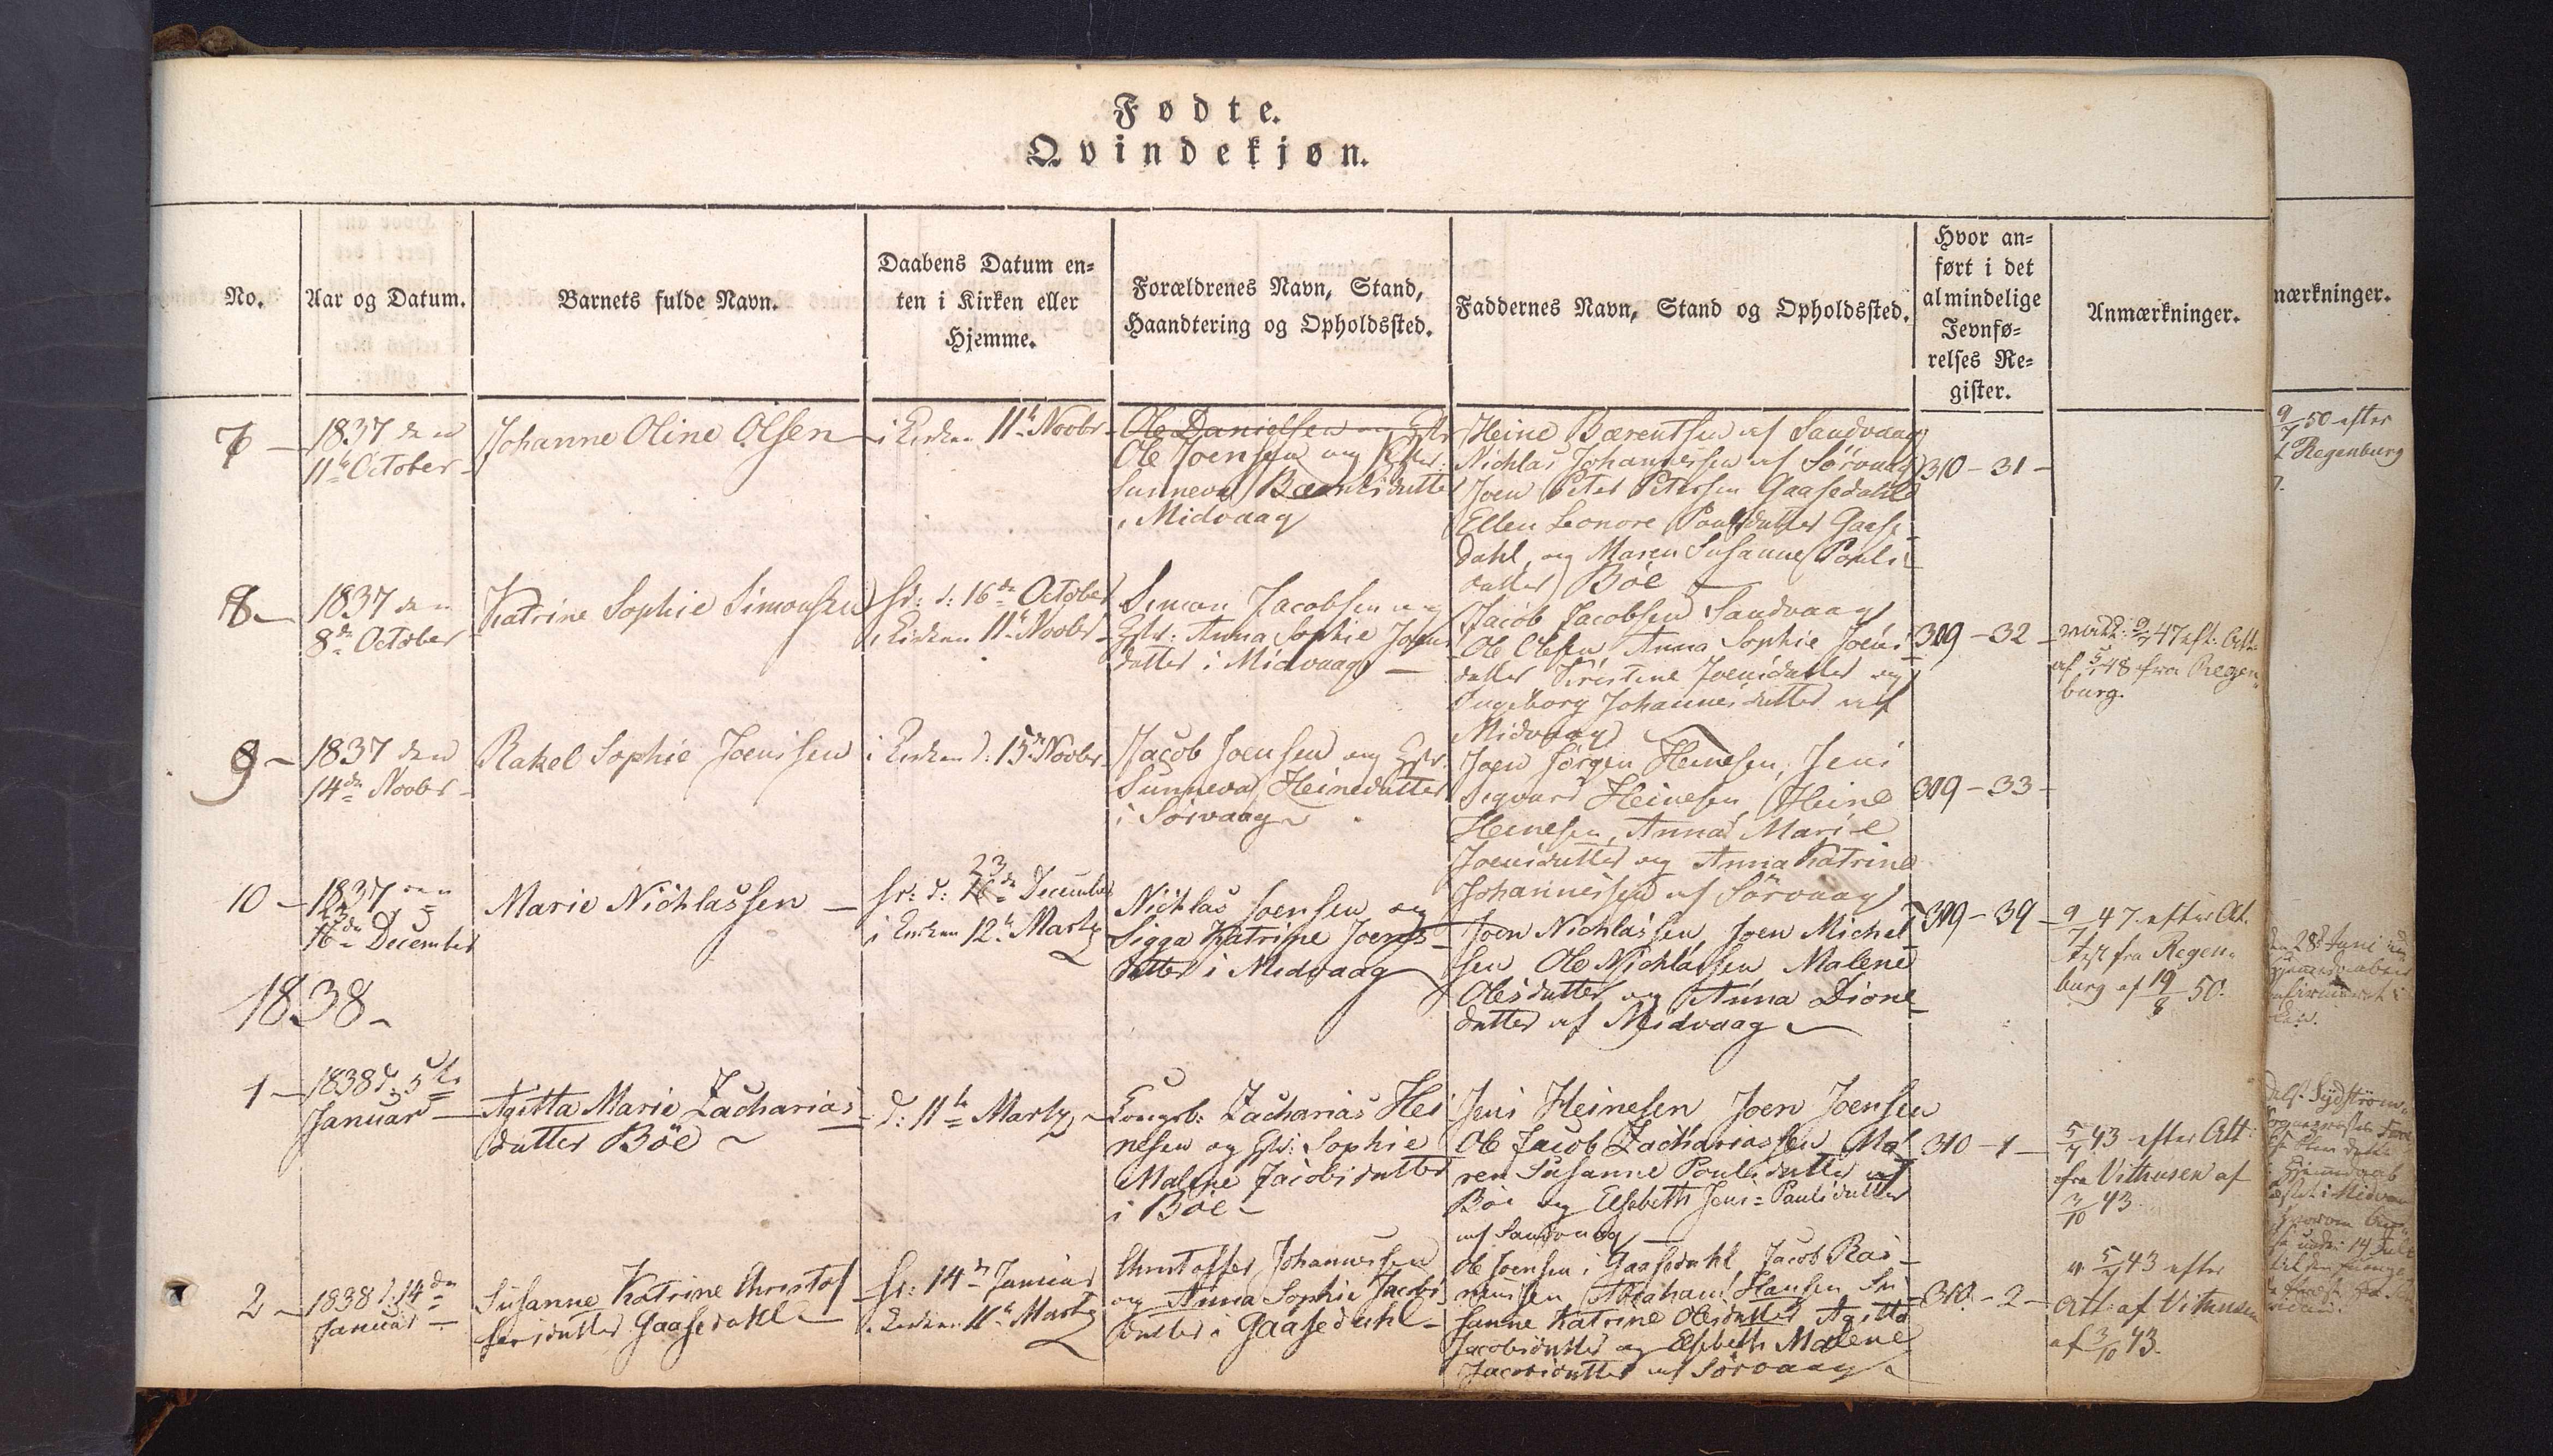 Fødte.
Qvindekjøn.
No.
Aar og Datum.
Barnets fulde Navn.
Daabens Datum en-
ten i Kirken eller
Hjemme.
Forældrenes Navn, Stand,
Haandtering og Opholdssted.
Faddernes Navn, Stand og Opholdssted.
Hvor an-
ført i det
almindelige
Jevnfø-
relses Re-
gister.
Anmærkninger.
7 -
1837 den
11te October -
Johanne Oline Olsen
i Kirken 11te Novbr -
Ole Danielsen og Hstr
Ole Joensen og Hstr:
Sunneva Barentsdatter
i Midvaag
Heine Bærentsen af Sandvaag
Nichlas Johannessen af Sörvaag
Joen Peter Petersen Gaasedahl
Ellen Leonore Poulsdatter Gaase-
dahl, og Maren Susanne Pouls-
datter Böe -
310 - 31 -
8 -
1837 den
8de October
Katrine Sophie Simonsen
Hr: d: 16de October
i Kirken 11te Novbr -
Simon Jacobsen og
Hstr: Anna Sophie Joens
datter i Midvaag -
Jacob Jacobsen Sandvaag
Ole Olesen Anna Sophie Joens-
datter Kristine Joensdatter og
Ingeborg Johannesdatter af
Midvaag
309 - 32 -
vacc: 9/7 47 eft: Att.
af 5/ 48 fra Regen-
burg.
9 -
1837 den
14de Novbr -
Rakel Sophie Joenssen
i Kirken d: 15de Novbr -
Jacob Joensen og Hstr.
Sunneva Heinesdatter
i Sörvaag -
Joen Jörgen Heinesen, Jens
Sigvard Heinesen, Heine
Heinesen, Anna Marie
Joensdatter og Anna Katrine
Johannessen af Sörvaag
309 - 33 -
10 -
1837 den
23
16de December
Marie Nichlassen -
23
Hr: d: 16de December
i Kirken 12te Marty
Nichlas Joensen og
Sigga Katrine Joens-
datter i Midvaag
Joen Nichlassen, Joen Michel-
sen Ole Nichlassen Malene
Olesdatter og Anna Dione-
datter af Midvaag -
309 - 39 -
9/7 47. efter At-
test fra Regen-
burg af 19/8 50.
1838 -
1 -
1838 d: 5te
Januar -
Agitta Marie Zacharias-
datter Böe -
d: 11te Marty -
Kongsb: Zacharias Hei
nesen og Hstr: Sophie
Malene Jacobsdatter
i Böe -
Jens Heinesen Joen Joensen
Ole Jacob Zachariassen Ma-
ren Susanne Poulsdatter af
Böe og Elsebeth Jens=Poulsdatter
af Sandvaag -
310 - 1 -
5/7 43 efter Att:
fra Vithusen af
3/10 43
2 -
1838 d: 14de
Januar -
Susanne Katrine Christof-
fersdatter Gaasedahl -
Hr: 14de Januar
i Kirken 11te Marty
Christoffer Johannessen
og Anna Sophie Jacobs-
datter i Gaasedahl -
Ole Joensen i Gaasedahl, Jacob Ras-
mussen Abraham Hansen Su-
sanne Katrine Olesdatter Agitta
Jacobsdatter og Elsebeth Malene
Jacobsdatter af Sörvaag
310 - 2 -
v. 5/7 43 efter
Att: af Vithusen
af 3/10 43.
nærkninger.
9/7 50 efter
Regenburg
28de Juni